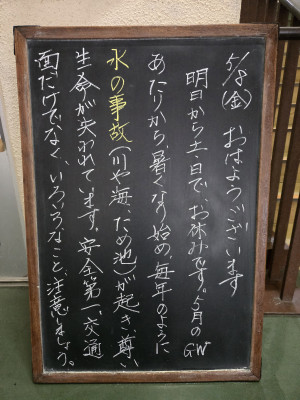 5/8(金) おはようございます
明日から土・日で、お休みです。5月のGW
あたりから、暑くなり始め、毎年のように
水の事故(川や海、ため池)が起き、尊い
生命が失われています。安全第一、交通
面だけでなく、いろいろなこと、注意しましょう。